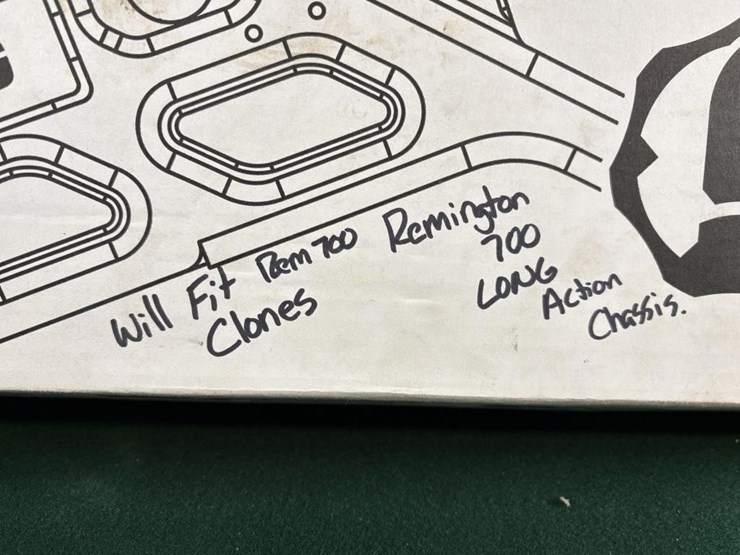 Will Fit Rem 700
Clones
Remington
700
LONG
Action
Chassis.